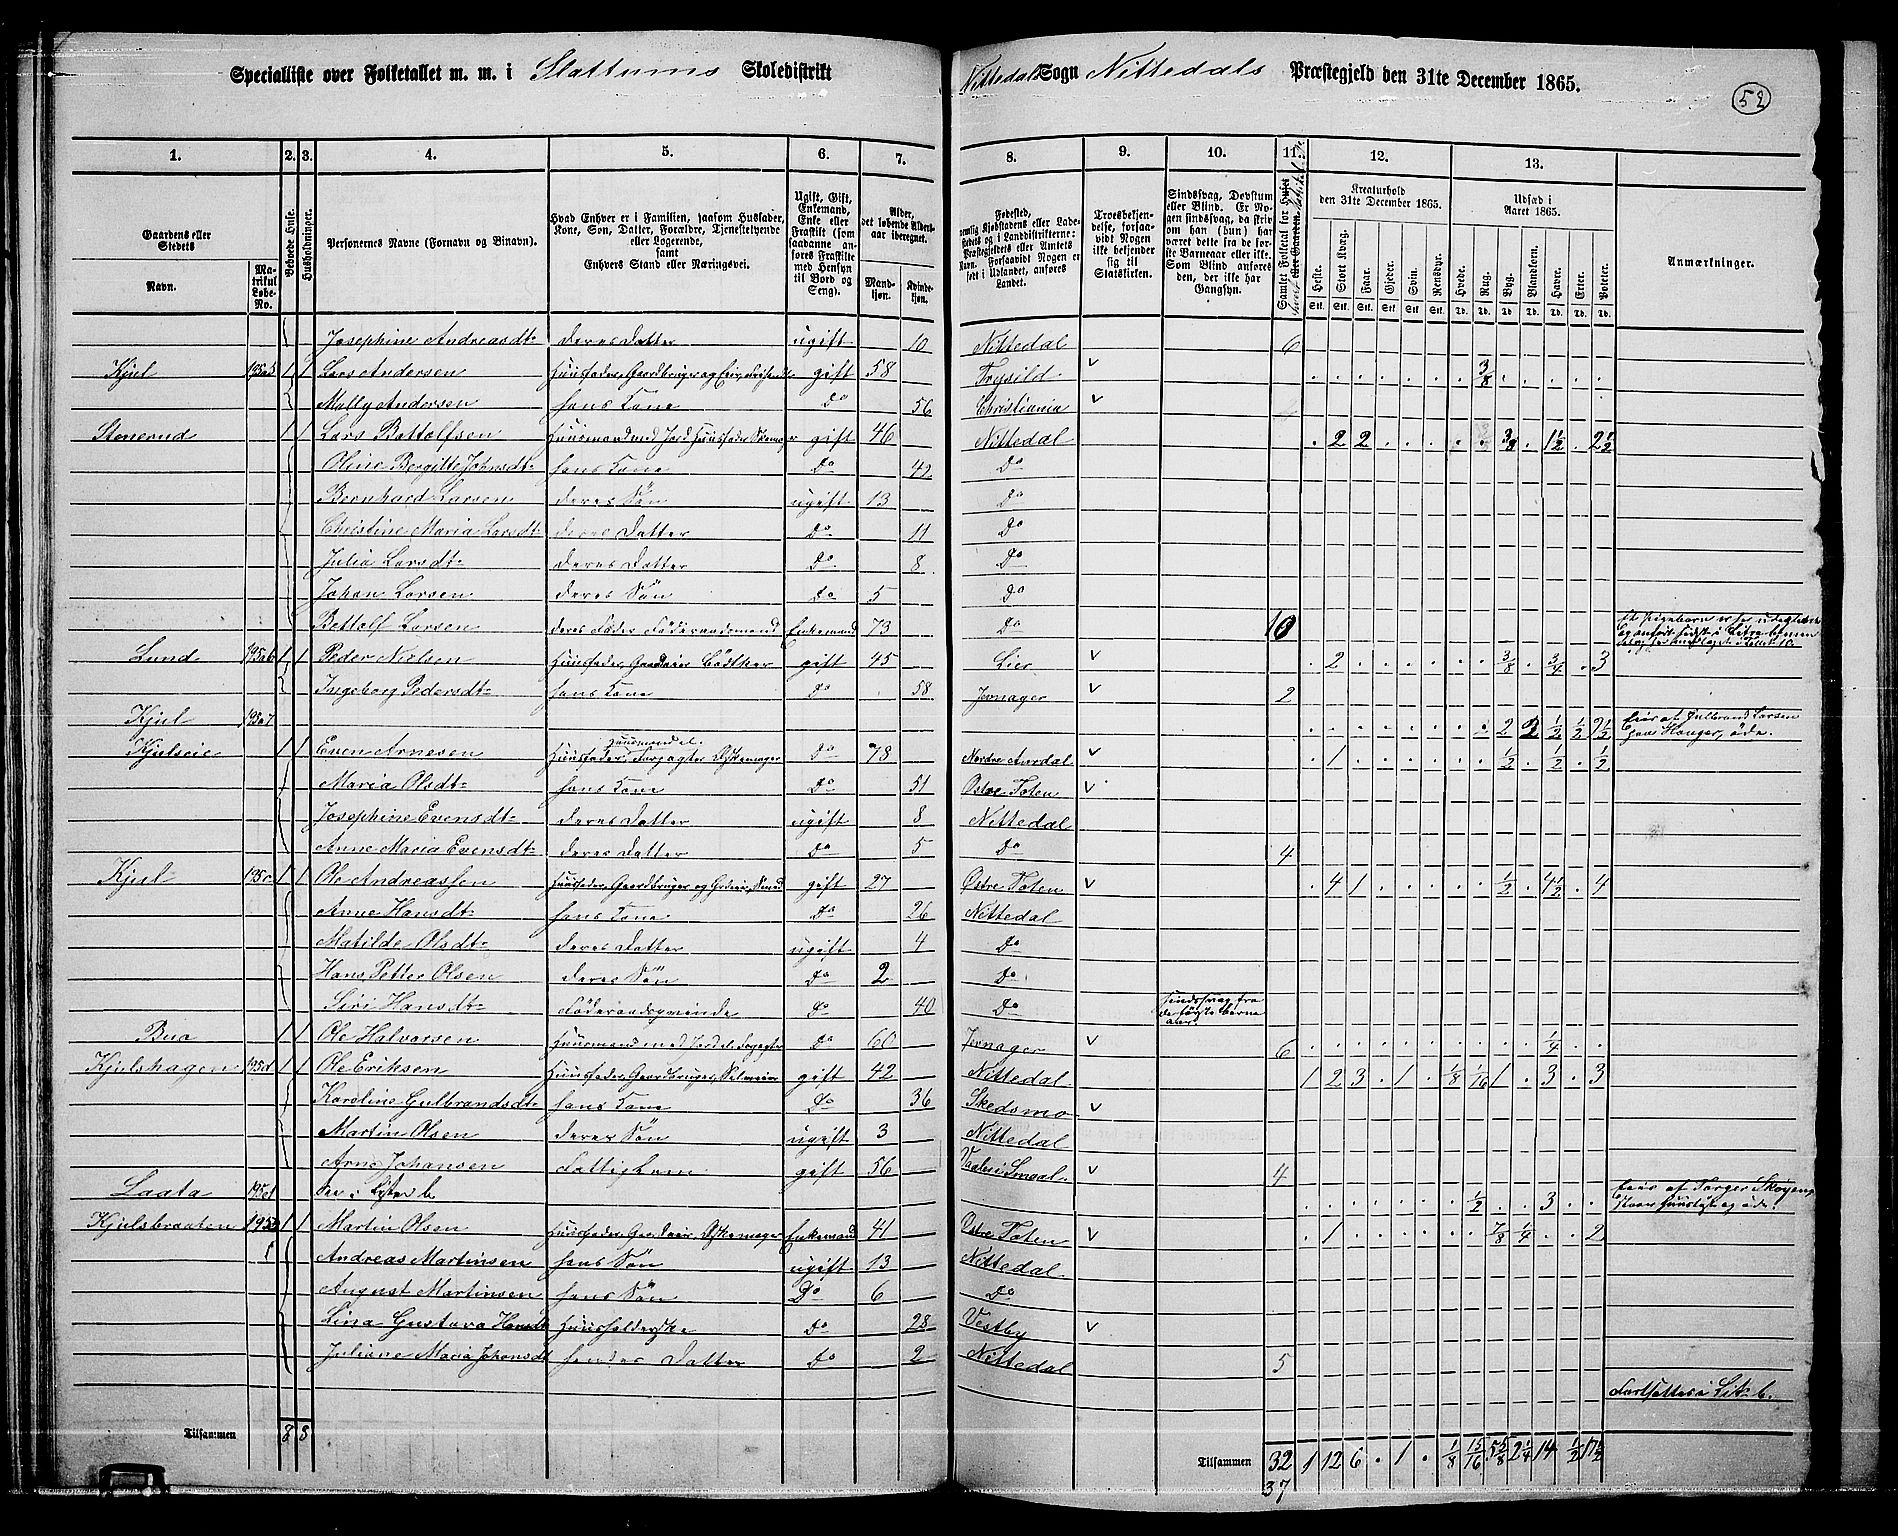 Specialliste over Folketallet m. m. i Slattums Skoledistrikt Nittedals Sogn Nittedals Præstegjeld den 31te December 1865.
52
1. 2. 3. 4. 5. 6. 7. 8. 9. 10. 11. 12. 13.
Gaardens eller Stedets Navn.
Matrikul Løbe-No.
Beboede Huse.
Husholdninger.
Personernes Navne (Fornavn og Binavn).
Hvad Enhver er i Familien, saasom Husfader, Kone, Søn, Datter, Forældre, Tjenestetyende eller Logerende, samt Enhvers Stand eller Næringsvei.
Ugift, Gift, Enkemand, Enke eller Fraskilt (som saadanne anføres Fraskilte med Hensyn til Bord og Seng).
Alder, det løbende Alders-aar iberegnet.
Mandkjøn. Kvindekjøn.
Troesbekjendelse, forsaavidt Nogen ikke bekjender sig til Statskirken.
Sindssvag, Døvstum eller Blind. Er Nogen sindssvag, da skrives om han (hun) har været dette fra de første Barneaar eller ikke. Som Blind anføres den, der ikke har Gangsyn.
Kreaturhold den 31te December 1865.
Udsæd i Aaret 1865.
Heste. Stort Kvæg. Faar. Gjeder. Svin. Rensdyr. Hvede. Rug. Byg. Blandkorn. Havre. Erter. Poteter.
Anmærkninger.
Josephine Andreasdt deres Datter ugift 10 Nittedal 6
Kjul 195a5 1 1 Lars Andersen gift 58 Trysild v 3/8
Mally Andersen hans Kone Do 56 Christiania v
Stenerud 1 1 Lars Bottolfsen Huusmand med Jord Huusfader Skomager gift 46 Nittedal 2 2 3/8 1 1/2 2 1/2
Oline Bergitte Johnsdt hans Kone Do 42 Do
Bernhard Larsen deres Søn ugift 13 Do
Christine Maria Larsdt deres Datter Do 11 Do
Julia Larsdt deres Datter Do 8 Do
Johan Larsen deres Søn Do 5 Do
Bottolf Larsen deres Fader Føderaadsmand Enkemand 73 Do 10
Lund 195a6 1 1 Peder Nielsen Huusfader, Gaardeier Bødtker gift 45 Lier v 2 3/8 3/4 3
Ingeborg Pedersdt hans Kone Do 58 Jevnager v 2
Kjul 195a7 2 2 1/2 1/2 2 1/2 Eies af Gulbrand Larsen
Kjulseie 1 1 Even Arnesen Do 78 Nordre Aurdal v 1 1/2 1/2 1/2
Maria Olsdt hans Kone Do 51 Østre Toten v
Josephine Evensdt deres Datter ugift 8 Nittedal
Anne Maria Evensdt deres Datter Do 5 Do 4
Kjul 195c 1 1 Ole Andreassen gift 27 Østre Toten v 4 1 1/2 4 1/2 4
Anne Hansdt hans Kone Do 26 Nittedal
Matilde Olsdt deres Datter ugift 4 Do
Hans Petter Olsen deres Søn Do 2 Do
Siri Hansdt Føderaadsqvinde Do 40 Do sindssvag fra de første Barneaar.
Bua 1 1 Ole Halvorsen Do 60 Jevnager v 6 1/4
Kjulshagen 195d 1 1 Ole Eriksen Huusfader, Gaardbruger, Selveier gift 42 Nittedal 1 2 3 1 1/8 1/16 1 3 3
Karoline Gulbrandsdt hans Kone Do 36 Skedsmo v
Martin Olsen deres Søn ugift 3 Nittedal
Arne Johansen Fattiglem gift 56 Vaaler i Smaal. v 4
Laata 195e1 See i Lister b 1/2 3 Eies af Torger Skøyen
Kjulsbraaten 195b 1 1 Martin Olsen Huusfader, Gaardeier, Enkemand 41 Østre Toten v 1 7/8 1/4 2
Andreas Martinsen hans Søn ugift 13 Nittedal
August Martinsen hans Søn Do 6 Do
Lina Gustava Hansdt Huusholderske Do 28 Vestby v
Juliane Maria Johansdt hendes Datter Do 2 Nittedal 5
Fortsættes i Litr b.
Tilsammen 8 8
Tilsammen 32 1 12 6 1 1/8 15/16 5 5/8 2 1/4 14 1/2 17 1/2
37